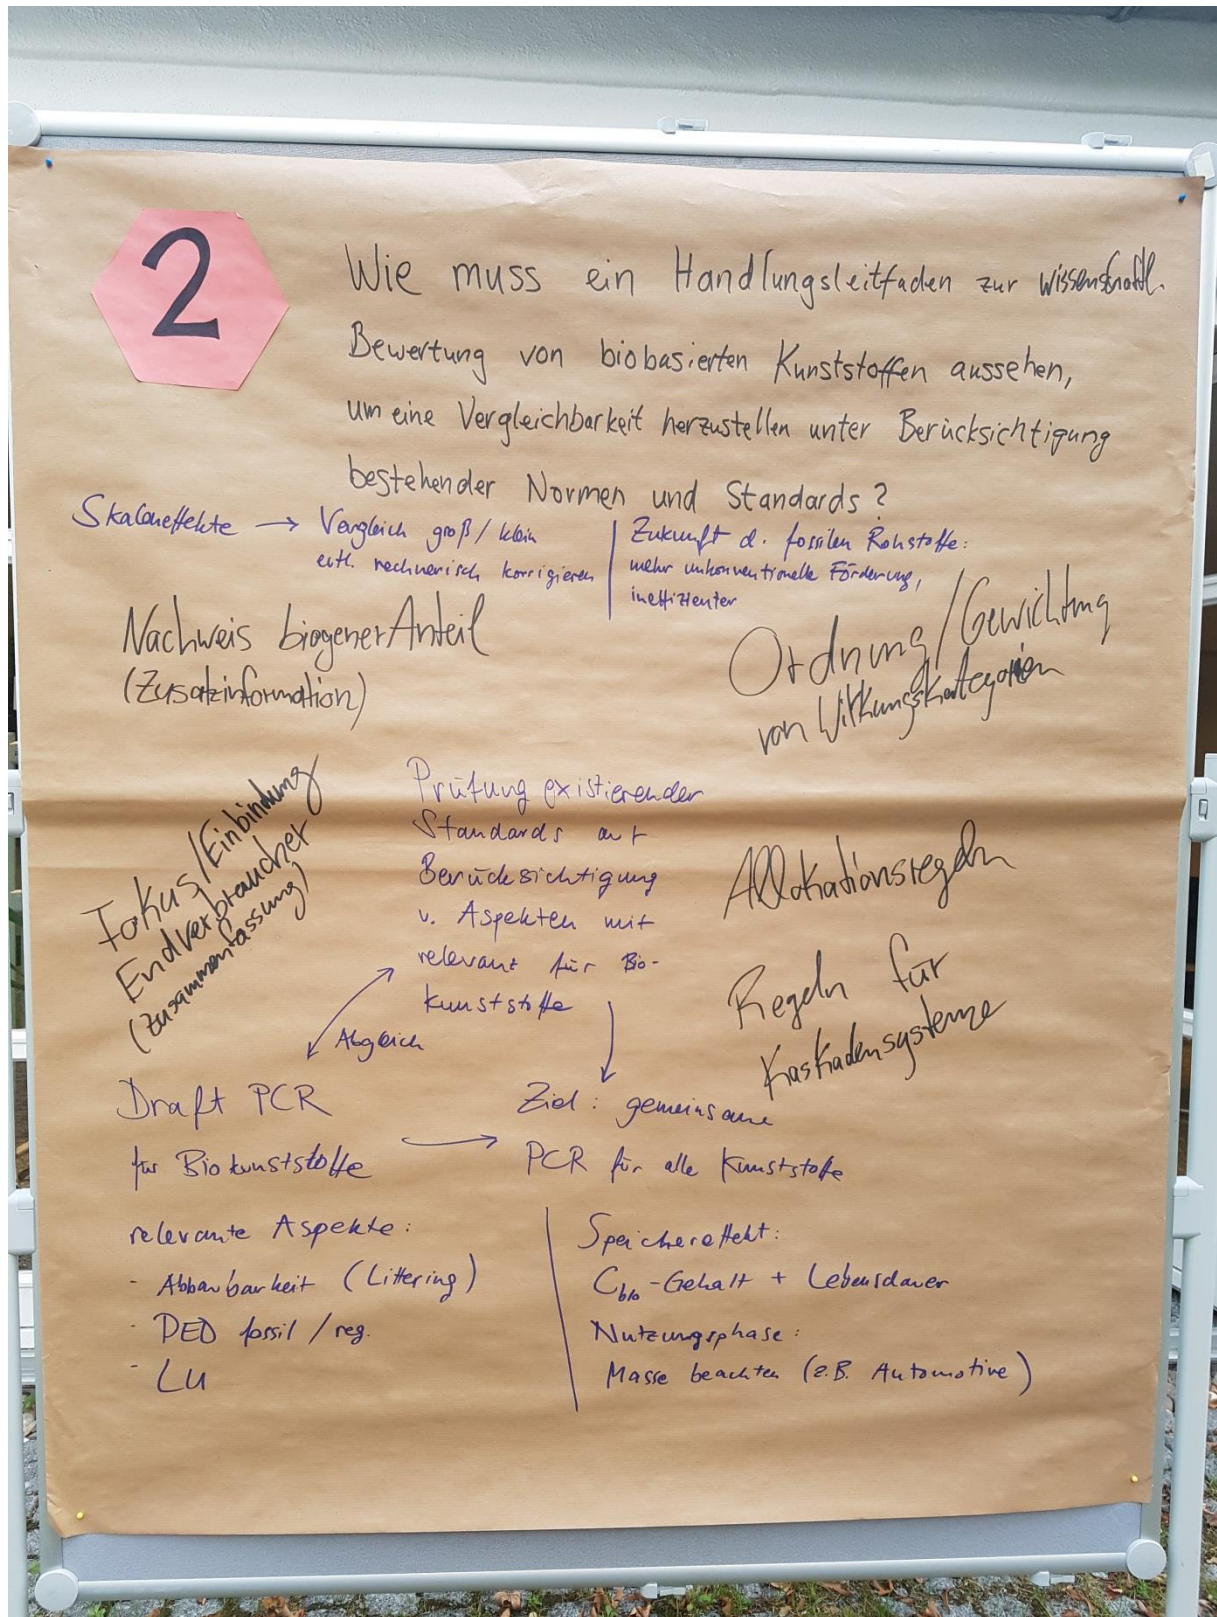 2
Wie muss ein Handlungsleitfaden zur wissenschaftl.
Bewertung von biobasierten Kunststoffen aussehen,
um eine Vergleichbarkeit herzustellen unter Berücksichtigung
bestehender Normen und Standards?
Skaleneffekte → Vergleich groß/klein
evtl. rechnerisch korrigieren
Zukunft d. fossilen Rohstoffe:
mehr unkonventionelle Förderung,
ineffizienter
Nachweis biogener Anteil
(Zusatzinformation)
Ordnung/Gewichtung
von Wirkungskategorien
Fokus/Einbindung
Endverbraucher
(Zusammenfassung)
Prüfung existierender
Standards auf
Berücksichtigung
v. Aspekten mit
relevanz für Bio-
kunststoffe
Allokationsregeln
Regeln für
Kaskadensysteme
Abgleich
Draft PCR
für Biokunststoffe
Ziel: gemeinsame
PCR für alle Kunststoffe
relevante Aspekte:
- Abbaubarkeit (Littering)
- PED fossil / reg.
- LU
Speichereffekt:
Cbio-Gehalt + Lebensdauer
Nutzungsphase:
Masse beachten (z.B. Automotive)